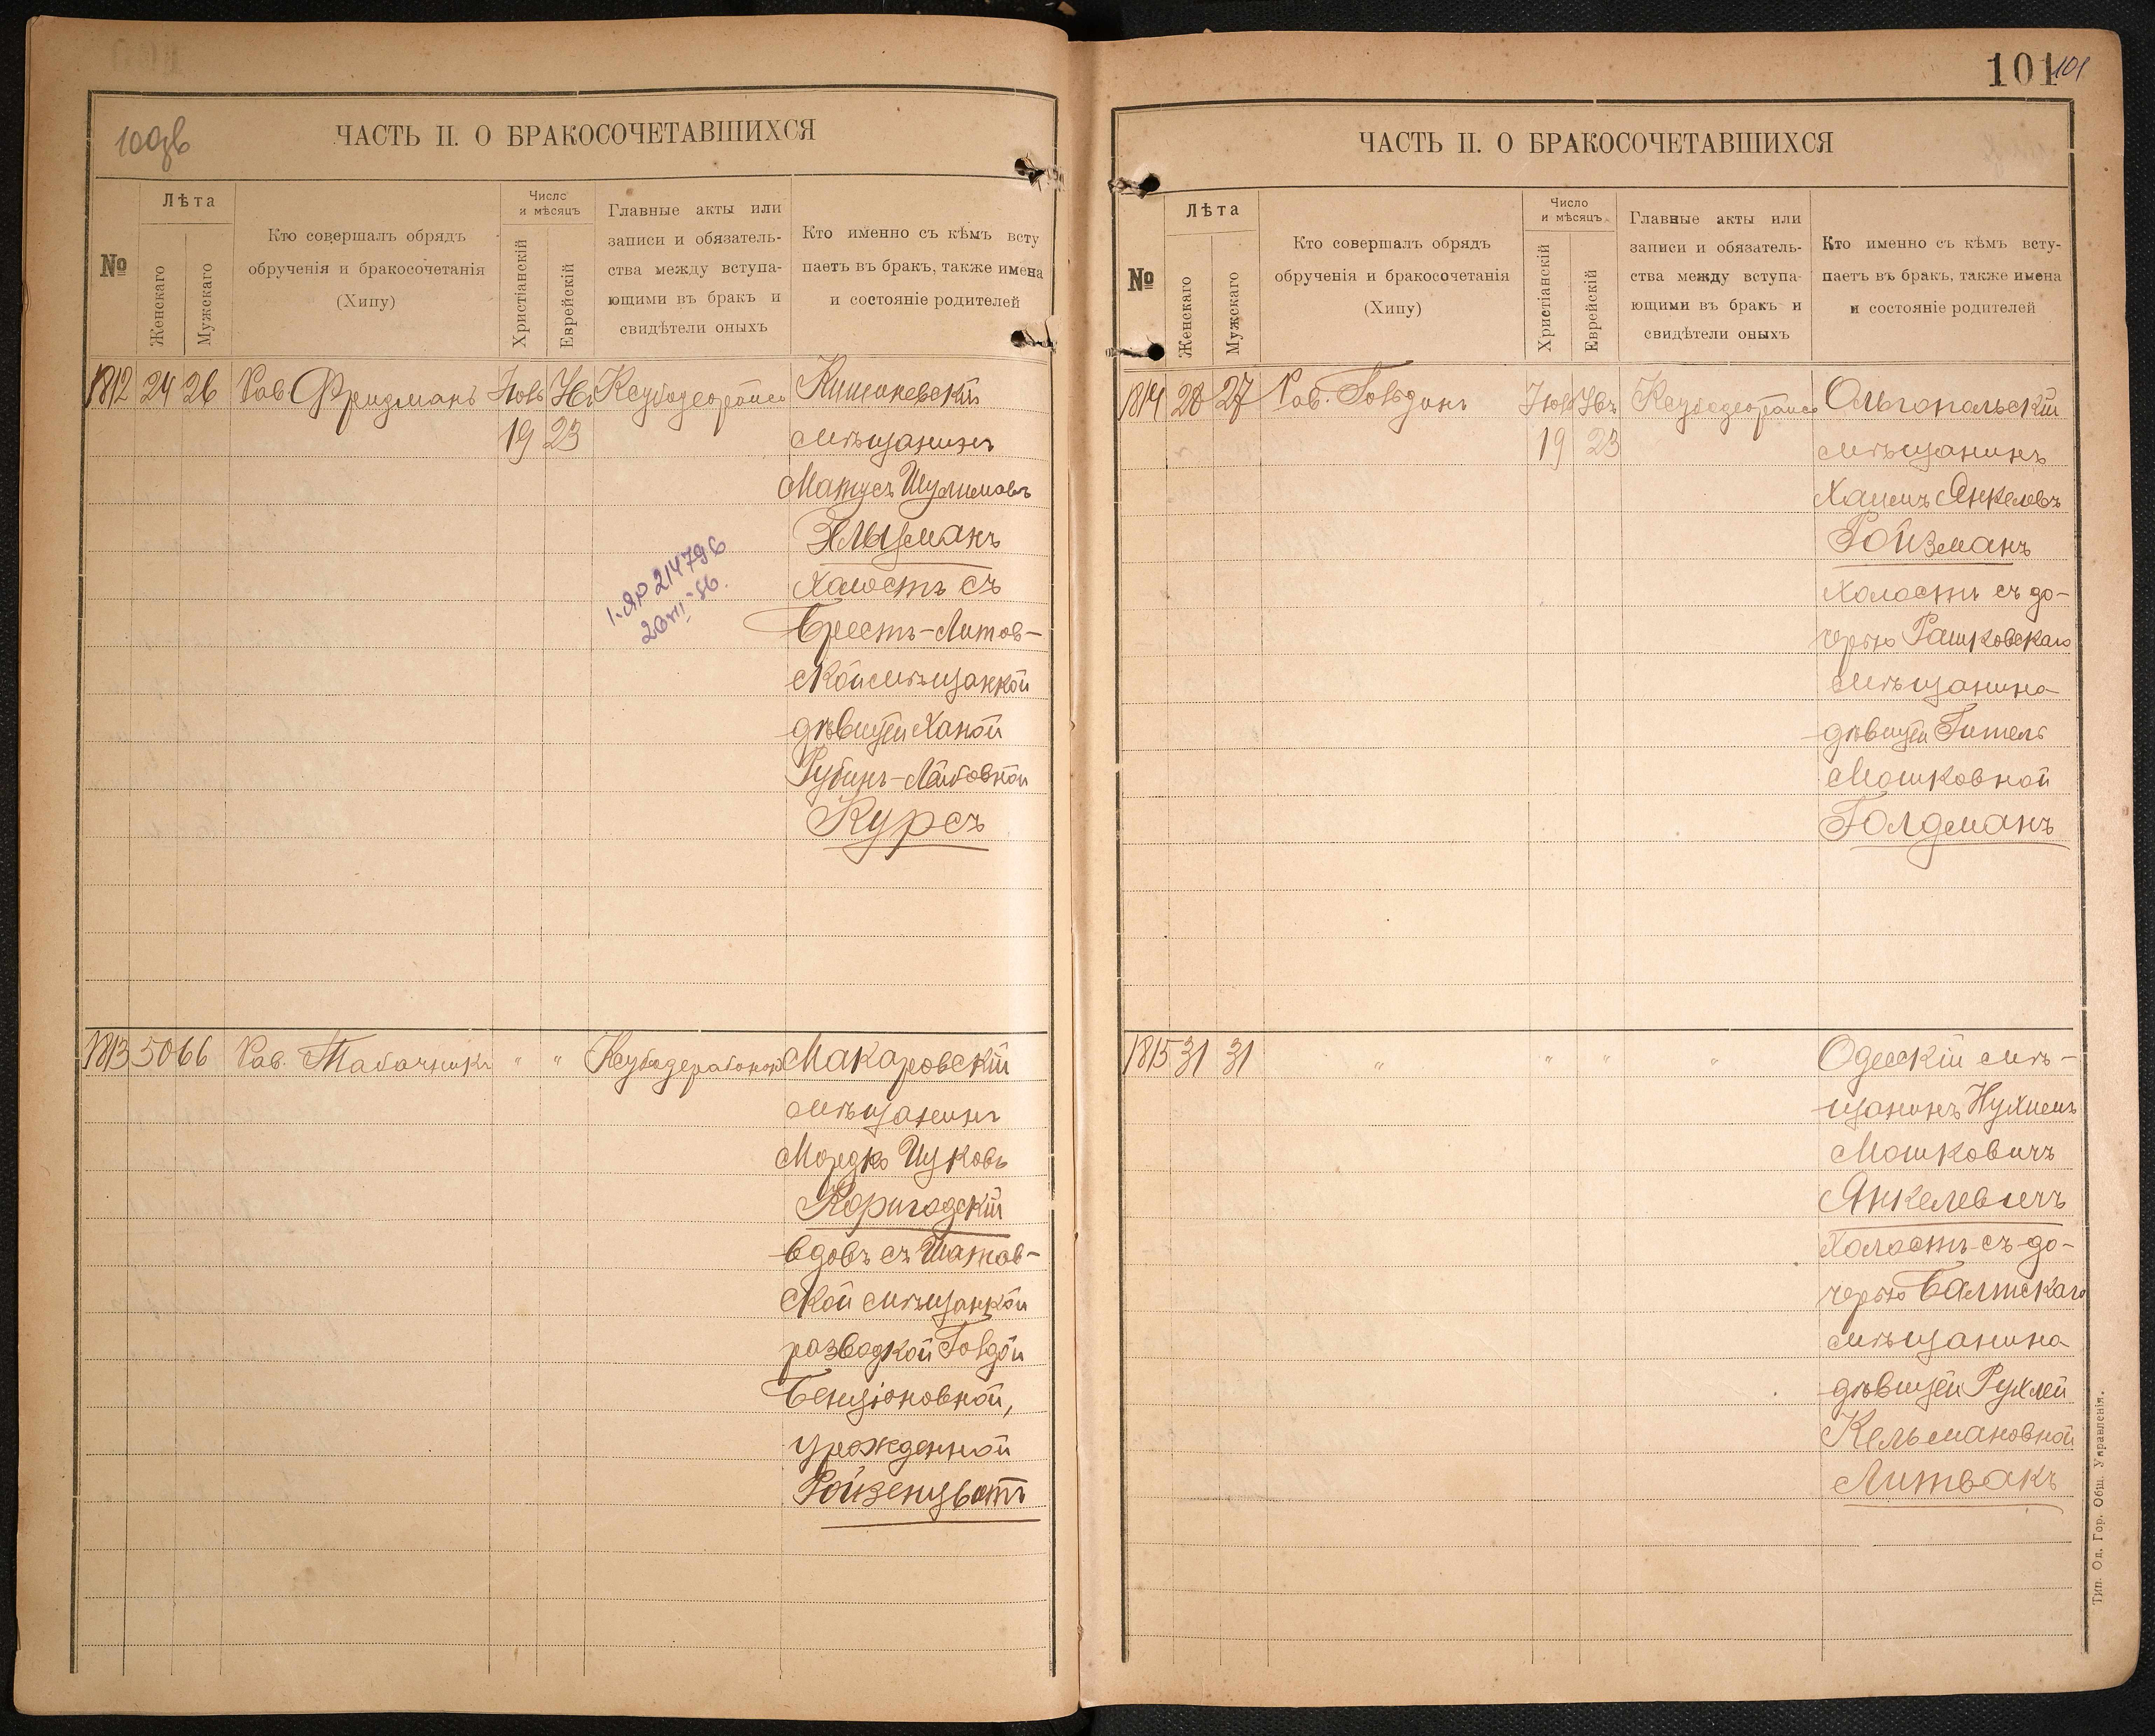 100дв
ЧАСТЬ II. О БРАКОСОЧЕТАВШИХСЯ
№
Лѣта
Женскаго
Мужскаго
Кто совершалъ обрядъ
обрученія и бракосочетанія
(Хипу)
Число
и мѣсяцъ
Христіанскій
Еврейскій
Главные акты или
записи и обязатель-
ства между вступа-
ющими въ бракъ и
свидѣтели оныхъ
Кто именно съ кѣмъ всту
паетъ въ бракъ, также имена
и состояніе родителей
1812 24 26 Рав. Фридманъ
19 23
Кишиневскій
мѣщанинъ
Матусъ Шулимовъ
холостъ съ
Брестъ-Литов-
ской мѣщанкой
дѣвицей Ханой
Рубинъ-Лейбовной
Курсъ
1813 50 66 Рав. Табачникъ " " Макаровскій
мѣщанинъ
Мордко Ицковъ
вдовъ съ Шатов-
ской мѣщанкой
разводкой Голдой
Бенціоновной,
урожденной
Ройзенцвитъ
101 101
ЧАСТЬ II. О БРАКОСОЧЕТАВШИХСЯ
№
Лѣта
Женскаго
Мужскаго
Кто совершалъ обрядъ
обрученія и бракосочетанія
(Хипу)
Число
и мѣсяцъ
Христіанскій
Еврейскій
Главные акты или
записи и обязатель-
ства между вступа-
ющими въ бракъ и
свидѣтели оныхъ
Кто именно съ кѣмъ всту-
паетъ въ бракъ, также имена
и состояніе родителей
1814 28 27 Рав. Ольгопольскій
19 23
мѣщанинъ
Хаимъ Янкелевъ
Ройзманъ
холостъ съ до-
черью Рашковскаго
мѣщанина
дѣвицей Гитель
Мошковной
Голдманъ
1815 31 31 " " " " Одесскій мѣ-
щанинъ Нухимъ
Мошковичъ
Янкелевичъ
холостъ съ до-
черью Балтскаго
мѣщанина
дѣвицей Рухлей
Кельмановной
Литвакъ
Тип. Од. Гор. Общ. Управленія.